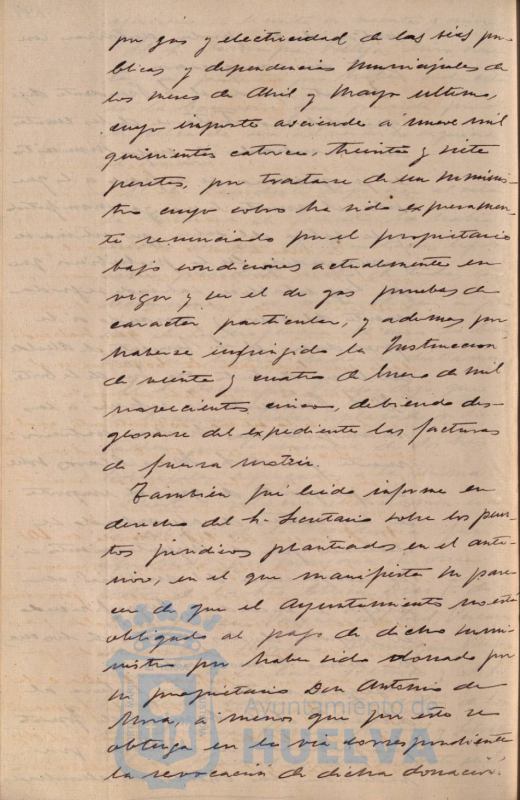 por gas y electricidad de las vias pu-
blicas y dependencias municipales de
los meses de Abril y Mayo ultimo,
cuyo importe asciende á nueve mil
quinientas catorce, treinta y siete
pesetas, por tratarse de un suminis-
tro cuyo cobro ha sido expresamen-
te renunciado por el propietario
bajo condiciones actualmente en
vigor y ser el de gas pruebas de
caracter particular, y ademas por
haberse infringido la Instrucción
de veinte y cuatro de Enero de mil
novecientos cinco, debiendo des-
glosarse del expediente las facturas
de fuerza motriz.
Tambien fué leido informe en
derecho del Sr. Secretario sobre los pun-
tos juridicos planteados en el ante-
rior, en el que manifiesta su pare-
cer de que el Ayuntamiento no está
obligado al pago de dicho sumi-
nistro por haber sido donado por
su propietario Don Antonio de
Mora, á menos que por esto se
obtenga en la via correspondiente
la revocación de dicha donación.
Ayuntamiento de
HUELVA